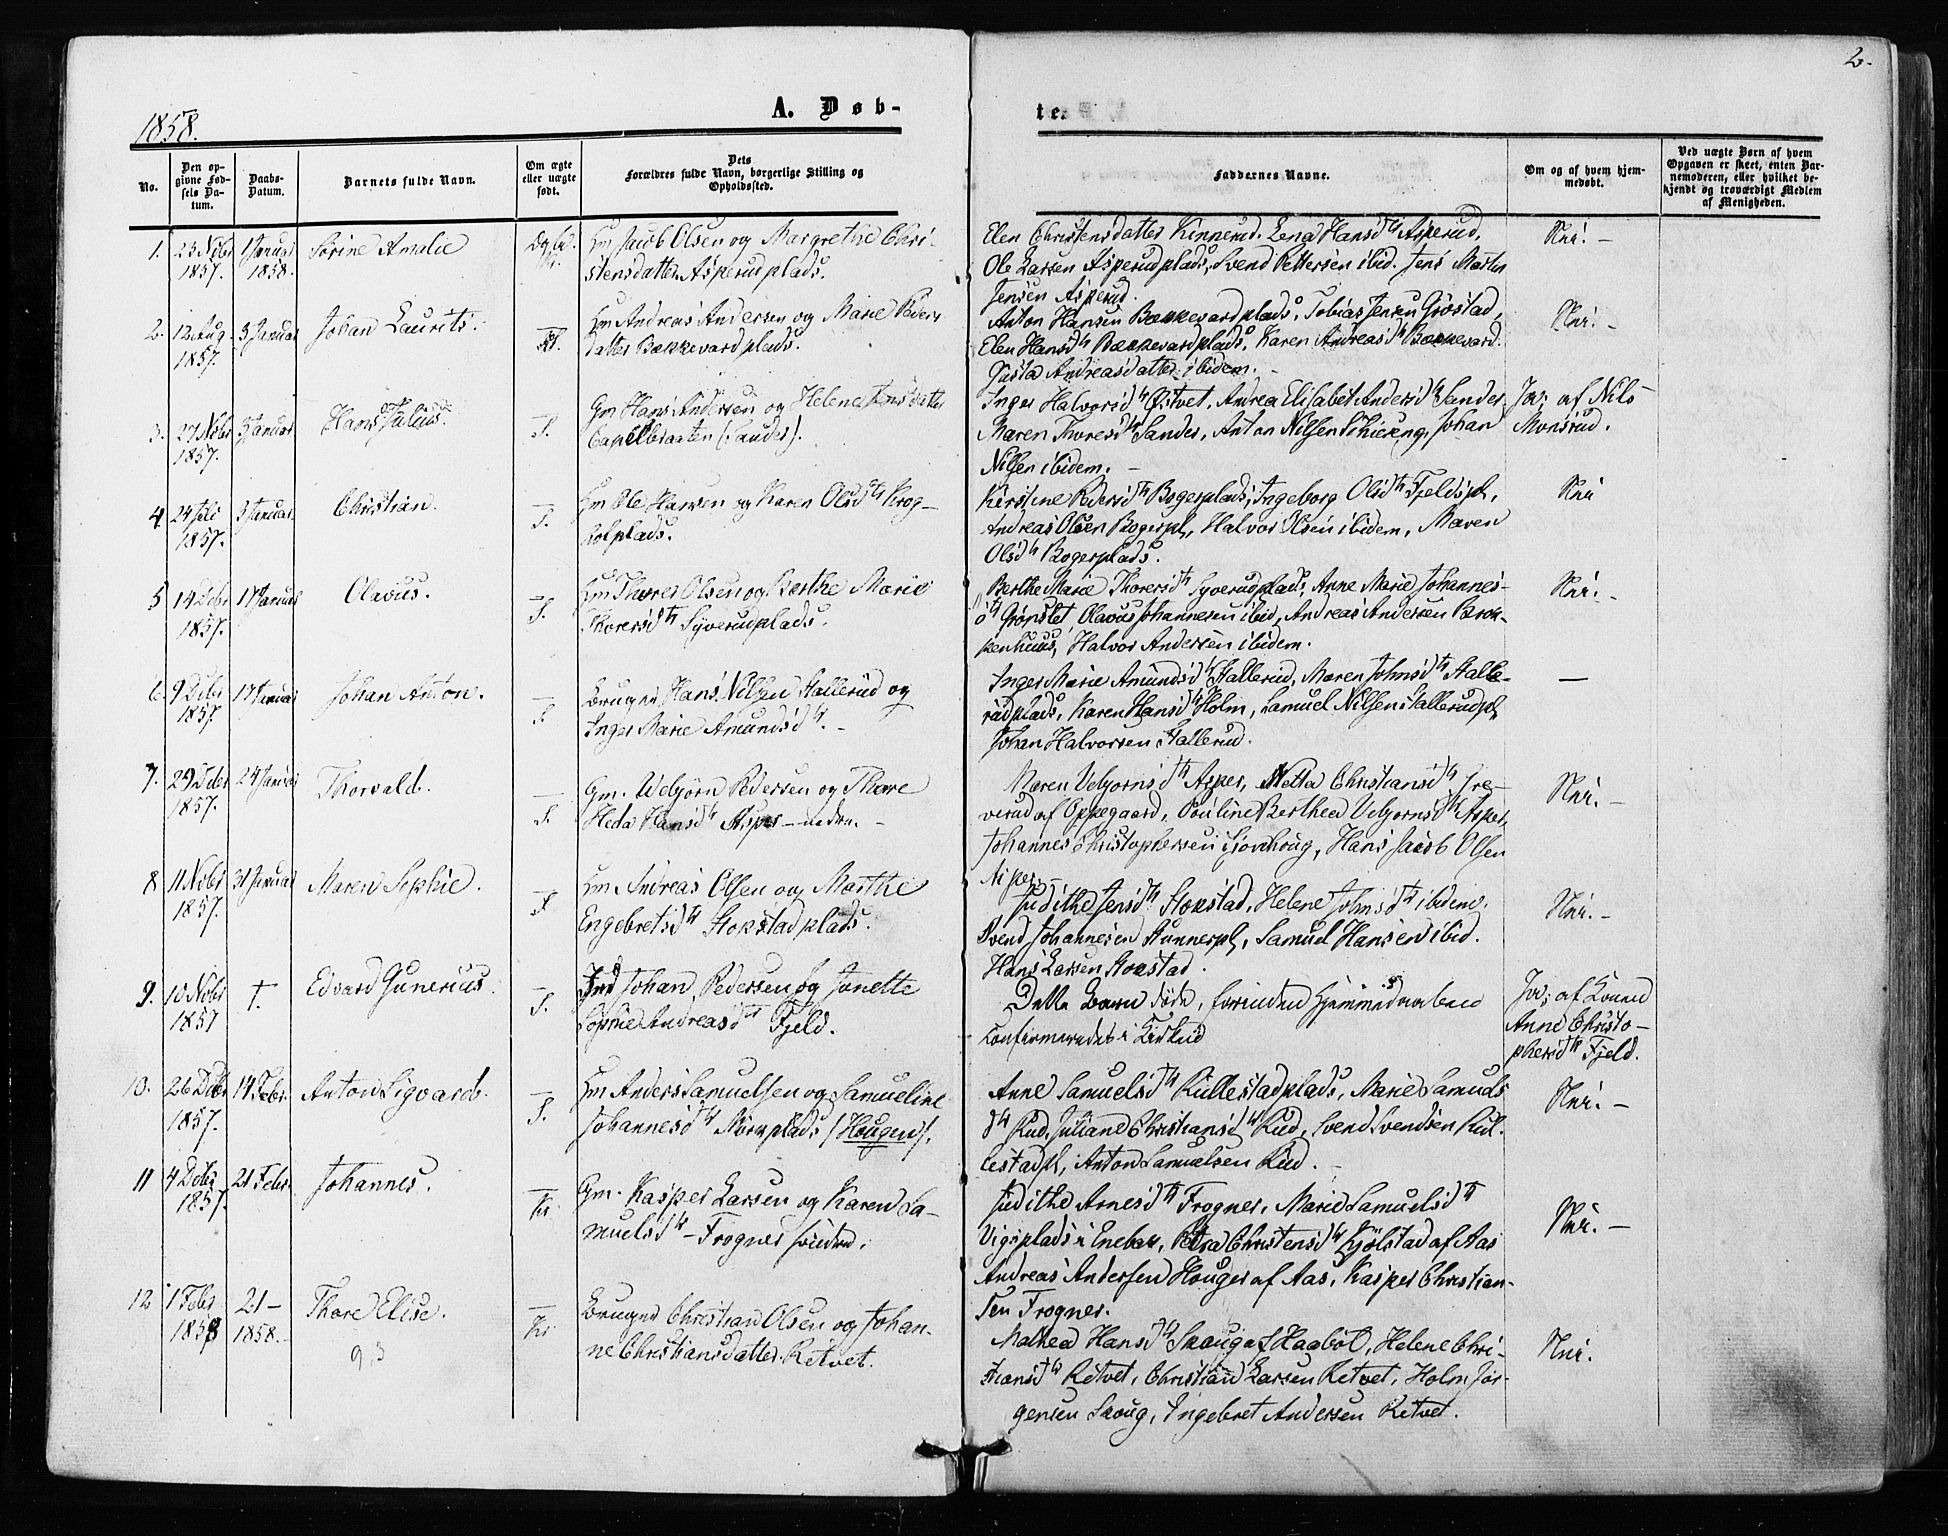 2.
1858.
A. Døb-
te.
No.
Den op-
givne Fød-
sels Da-
tum.
Daabs-
Datum.
Barnets fulde Navn.
Om ægte
eller uægte
født.
Dets
Forældres fulde Navn, borgerlige Stilling og
Opholdssted.
Faddernes Navne.
Om og af hvem hjem-
medøbt.
Ved uægte Børn af hvem
Opgaven er skeet, enten Bar-
nemoderen, eller hvilket be-
kjendt og troværdigt Medlem
af Menigheden.
1. 23 Nvbr
1857. 1 Januar
1858. Sørine Amalie
Hm Jacob Olsen og Margrethe Chri-
stensdatter Asperudplads.
Elen Christensdatter Kinnerud. Lena Hansdtr Asperud,
Ole Larsen Asperudplads, Svend Pettersen ibid. Jens Martin
Jensen Asperud.
Nei. -
2. 12 Aug
1857. 3 Januar Johan Laurits.
Hm Andreas Andersen og Marie Peders
datter Bækkevardplads.
Anton Hansen Bækkevardplads, Tobias Jensen Grøstad,
Elen Hansdtr Bækkevardplads, Karen Andreasdtr Bækkevard.
Gusta Andreasdatter ibidem. -
Nei. -
3. 27 Nvbr
1857. 3 Januar Hans Julius.
S.
Gm Hans Andersen og Helene Jensdatter
Capelbraaten (Sander).
Inger Halvorsdtr Østvet, Andrea Elisabet Andersdtr Sander,
Maren Thoresdtr Sander, Anton Nilsen Schieeng, Johan
Nilsen ibidem. -
Ja; af Nils
Monsrud.
4 24 Juli
1857. 3 Januar. Christian.
S.
Hm Ole Hansen og Karen Olsdtr Krog-
bølplads.
Kirstine Pedersdtr Bogerplads, Ingeborg Olsdtr Fjeldspl,
Andreas Olsen Bogerpl, Halvor Olsen ibidem, Maren
Olsdtr Bogerplads.
Nei
5 14 Debr
1857. 17 Januar Olavus.
S.
Hm Thores Olsen og Berthe Marie
Thoresdtr Syverudplads.
Berthe Marie Thoresdtr Syverudplads, Anne Marie Johannes-
dtr Grønslet, Olavus Johannesen ibid, Andreas Andersen Bræk-
kenhuus, Halvor Andersen ibidem.
Nei. -
6. 9 Debr
1857. 17 Januar Johan Anton.
S.
Bruger Hans Nilsen Stallerud og
Inger Marie Amundsdtr. -
Inger Marie Amundsdtr Stallerud, Maren Johnsdtr Stalle-
rudplads, Karen Hansdtr Holm, Samuel Nilsen Stallerudpl,
Johan Halvorsen Stallerud.
—
7. 29 Debr
1857. 24 Januar Thorvald.
S.
Gm. Vebjørn Pedersen og Thore
Heda Hansdtr Asper - nedre. -
Maren Vebjørnsdtr Asper, Netta Christiansdtr Gre-
verud af Oppegaard, Pouline Berthea Vebjørnsdtr Asper,
Johannes Christophersen Sjovhoug, Hans Jacob Olsen
Asper. -
Nei. -
8 11 Nvbr
1857. 31 Januar Maren Sophie.
S.
Hm Andreas Olsen og Marthe
Engebretsdtr Stokstadplads.
Judithe Jensdtr Stokstad, Helene Johnsdtr ibidem.
Svend Johannesen Stunnerpl, Samuel Hansen ibid.
Hans Larsen Stokstad.
Nei. -
9. 10 Nvbr
1857 †. Edvard Gunerius
S.
Ind Johan Pedersen og Jonette
Sophie Andreasdtr Fjeld.
Dette Barn døde, forinden Hjemmedaaben
confirmeredes i Kirken
Ja; af Konen
Anne Christo-
phersdtr Fjeld.
10. 26 Debr
1857. 14 Febr. Anton Sigvard.
S.
Hm Anders Samuelsen og Samueline
Johannesdtr Nordplads (Hougen).
Anne Samuelsdtr Kullestadplads, Marie Samuels
dtr Rud, Juliane Christiansdtr Rud, Svend Svendsen Kul-
lestadpl, Anton Samuelsen Rud. -
Nei. -
11 4 Debr
1857. 21 Febr. Johannes.
Kr
Gm. Kasper Larsen og Karen Sa-
muelsdtr - Frogner søndre.
Judithe Arnesdtr Frogner, Marie Samuelsdtr
Vigsplads i Enebak, Petra Christensdtr Kjølstad af Aas
Andreas Andersen Houger af Aas, Kasper Christian-
sen Frogner.
Nei. -
12 1 Febr
1858 21 -
1858. Thore Elise.
9,3
Kr.
Bruger Christian Olsen og Johan-
ne Christiansdatter Retvet.
Mathea Hansdtr Skoug af Haabøl, Helene Chri-
stiansdtr Retvet, Christian Larsen Retvet, Holm Jør-
gensen Skoug, Ingebret Andersen Retvet.
Nei.